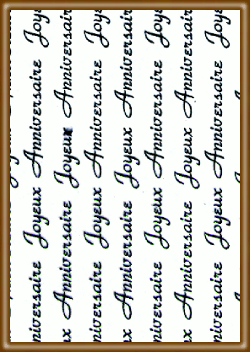 niversaire Joyeux Anniversaire Joye
ux Anniversaire Joyeux Anniversair
niversaire Joyeux Anniversaire Joye
ux Anniversaire Joyeux Anniversair
niversaire Joyeux Anniversaire Joye
ux Anniversaire Joyeux Anniversair
niversaire Joyeux Anniversaire Joye